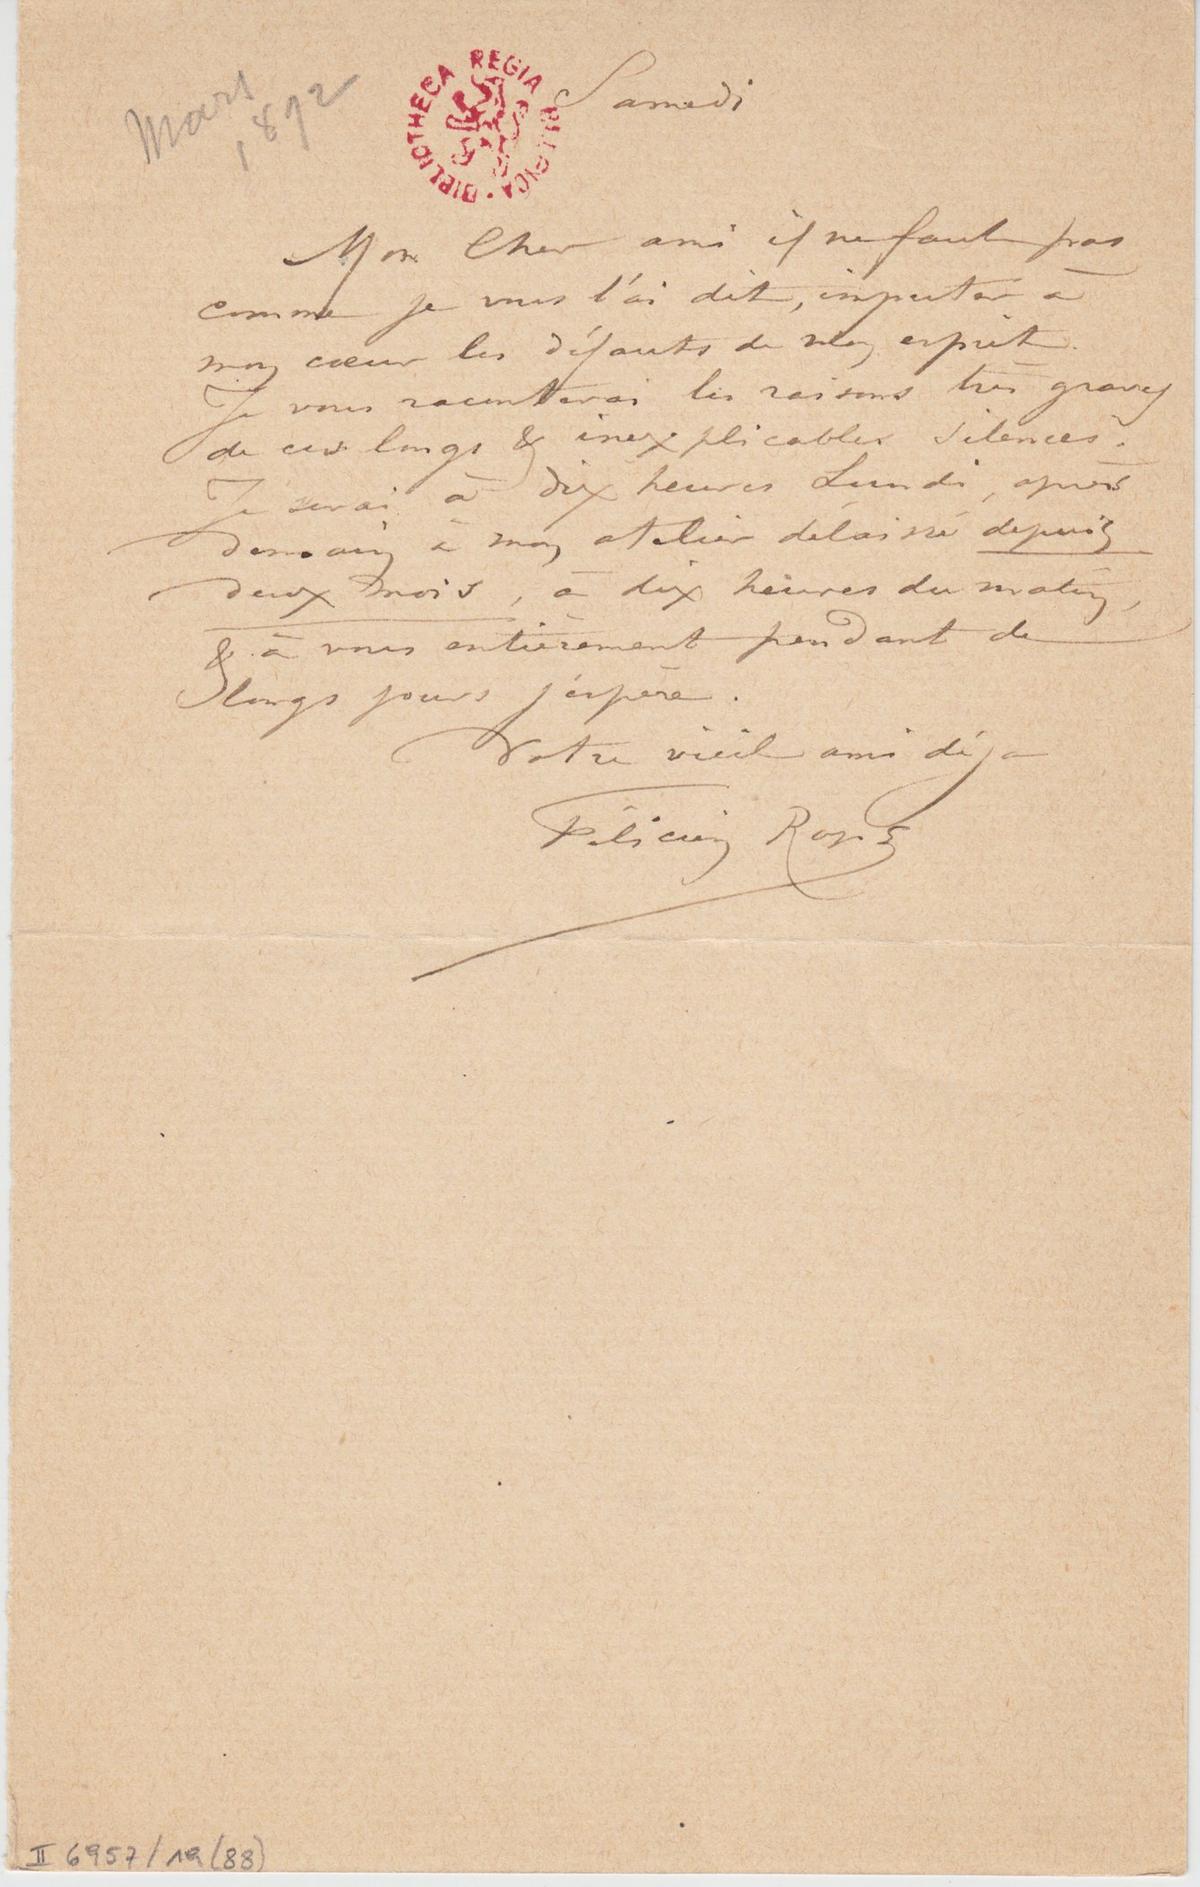 Mars
1892
BIBLIOTHECA REGIA BELGICA
Samedi
Mon Cher ami il ne faut pas
comme je vous l'ai dit, imputer à
mon cœur les défauts de mon esprit.
Je vous raconterai les raisons très graves
de ces longs & inexplicables silences.
Je serai à dix heures Lundi, après
demain à mon atelier délaissé depuis
deux mois, à dix heures du matin,
& à vous entièrement pendant de
longs jours j'espère.
Votre vieil ami déjà
Félicien Rops
II 6957/19 (88)